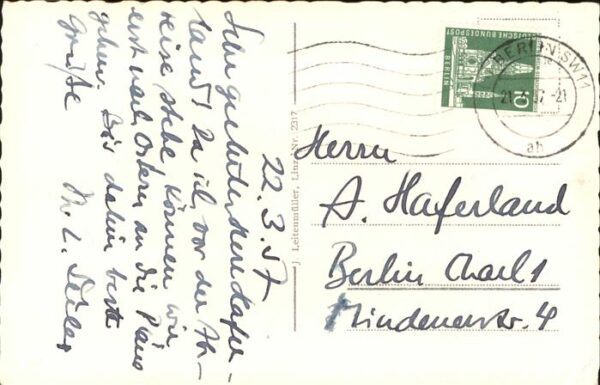 22.3.57
Sehr geehrter Herr Hafer-
land! Da ich vor der Ab-
reise stehe können wir
erst nach Ostern an die
gehen. Bis dahin beste
Grüße
J. Leitenmüller, Linz Nr. 2317
DEUTSCHE BUNDESPOST
BERLIN
10
BERLIN SW11
-21
ah
Herrn
A. Haferland
Berlin Charl 1
Mindenerstr. 4